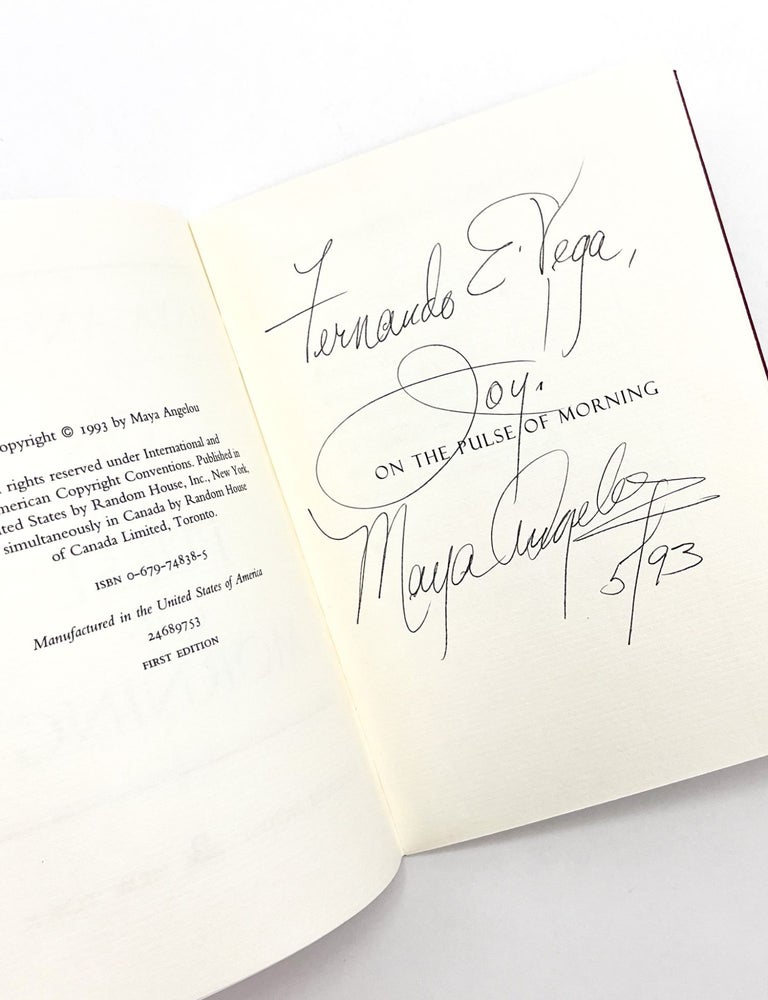 opyright © 1993 by Maya Angelou
rights reserved under International and
merican Copyright Conventions. Published in
ted States by Random House, Inc., New York,
simultaneously in Canada by Random House
of Canada Limited, Toronto.
ISBN 0-679-74838-5
Manufactured in the United States of America
24689753
FIRST EDITION
Fernando E. Vega,
Joy.
ON THE PULSE OF MORNING
Maya Angelou
5/93